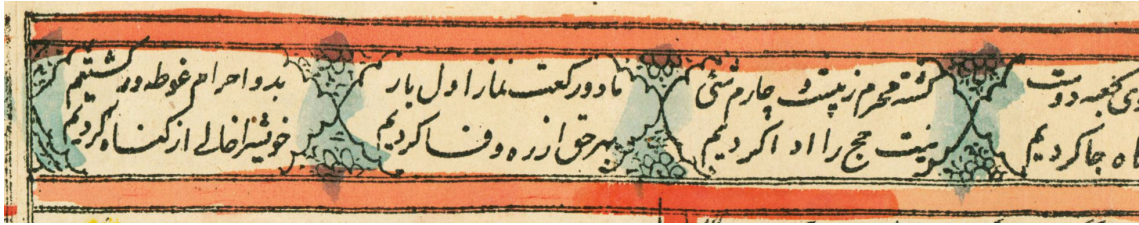 کعبه دوست
جا کردیم
گشته محرم
نیت حج را ادا کردیم
ما دو رکعت نماز اول بار
بهر حق از ره وفا کردیم
بدو احرام غوطه ور گشتیم
خویش را خالی از گناه کردیم